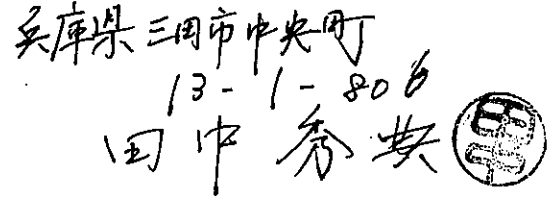 兵庫県三田市中央町
13-1-806
田中秀典
田中